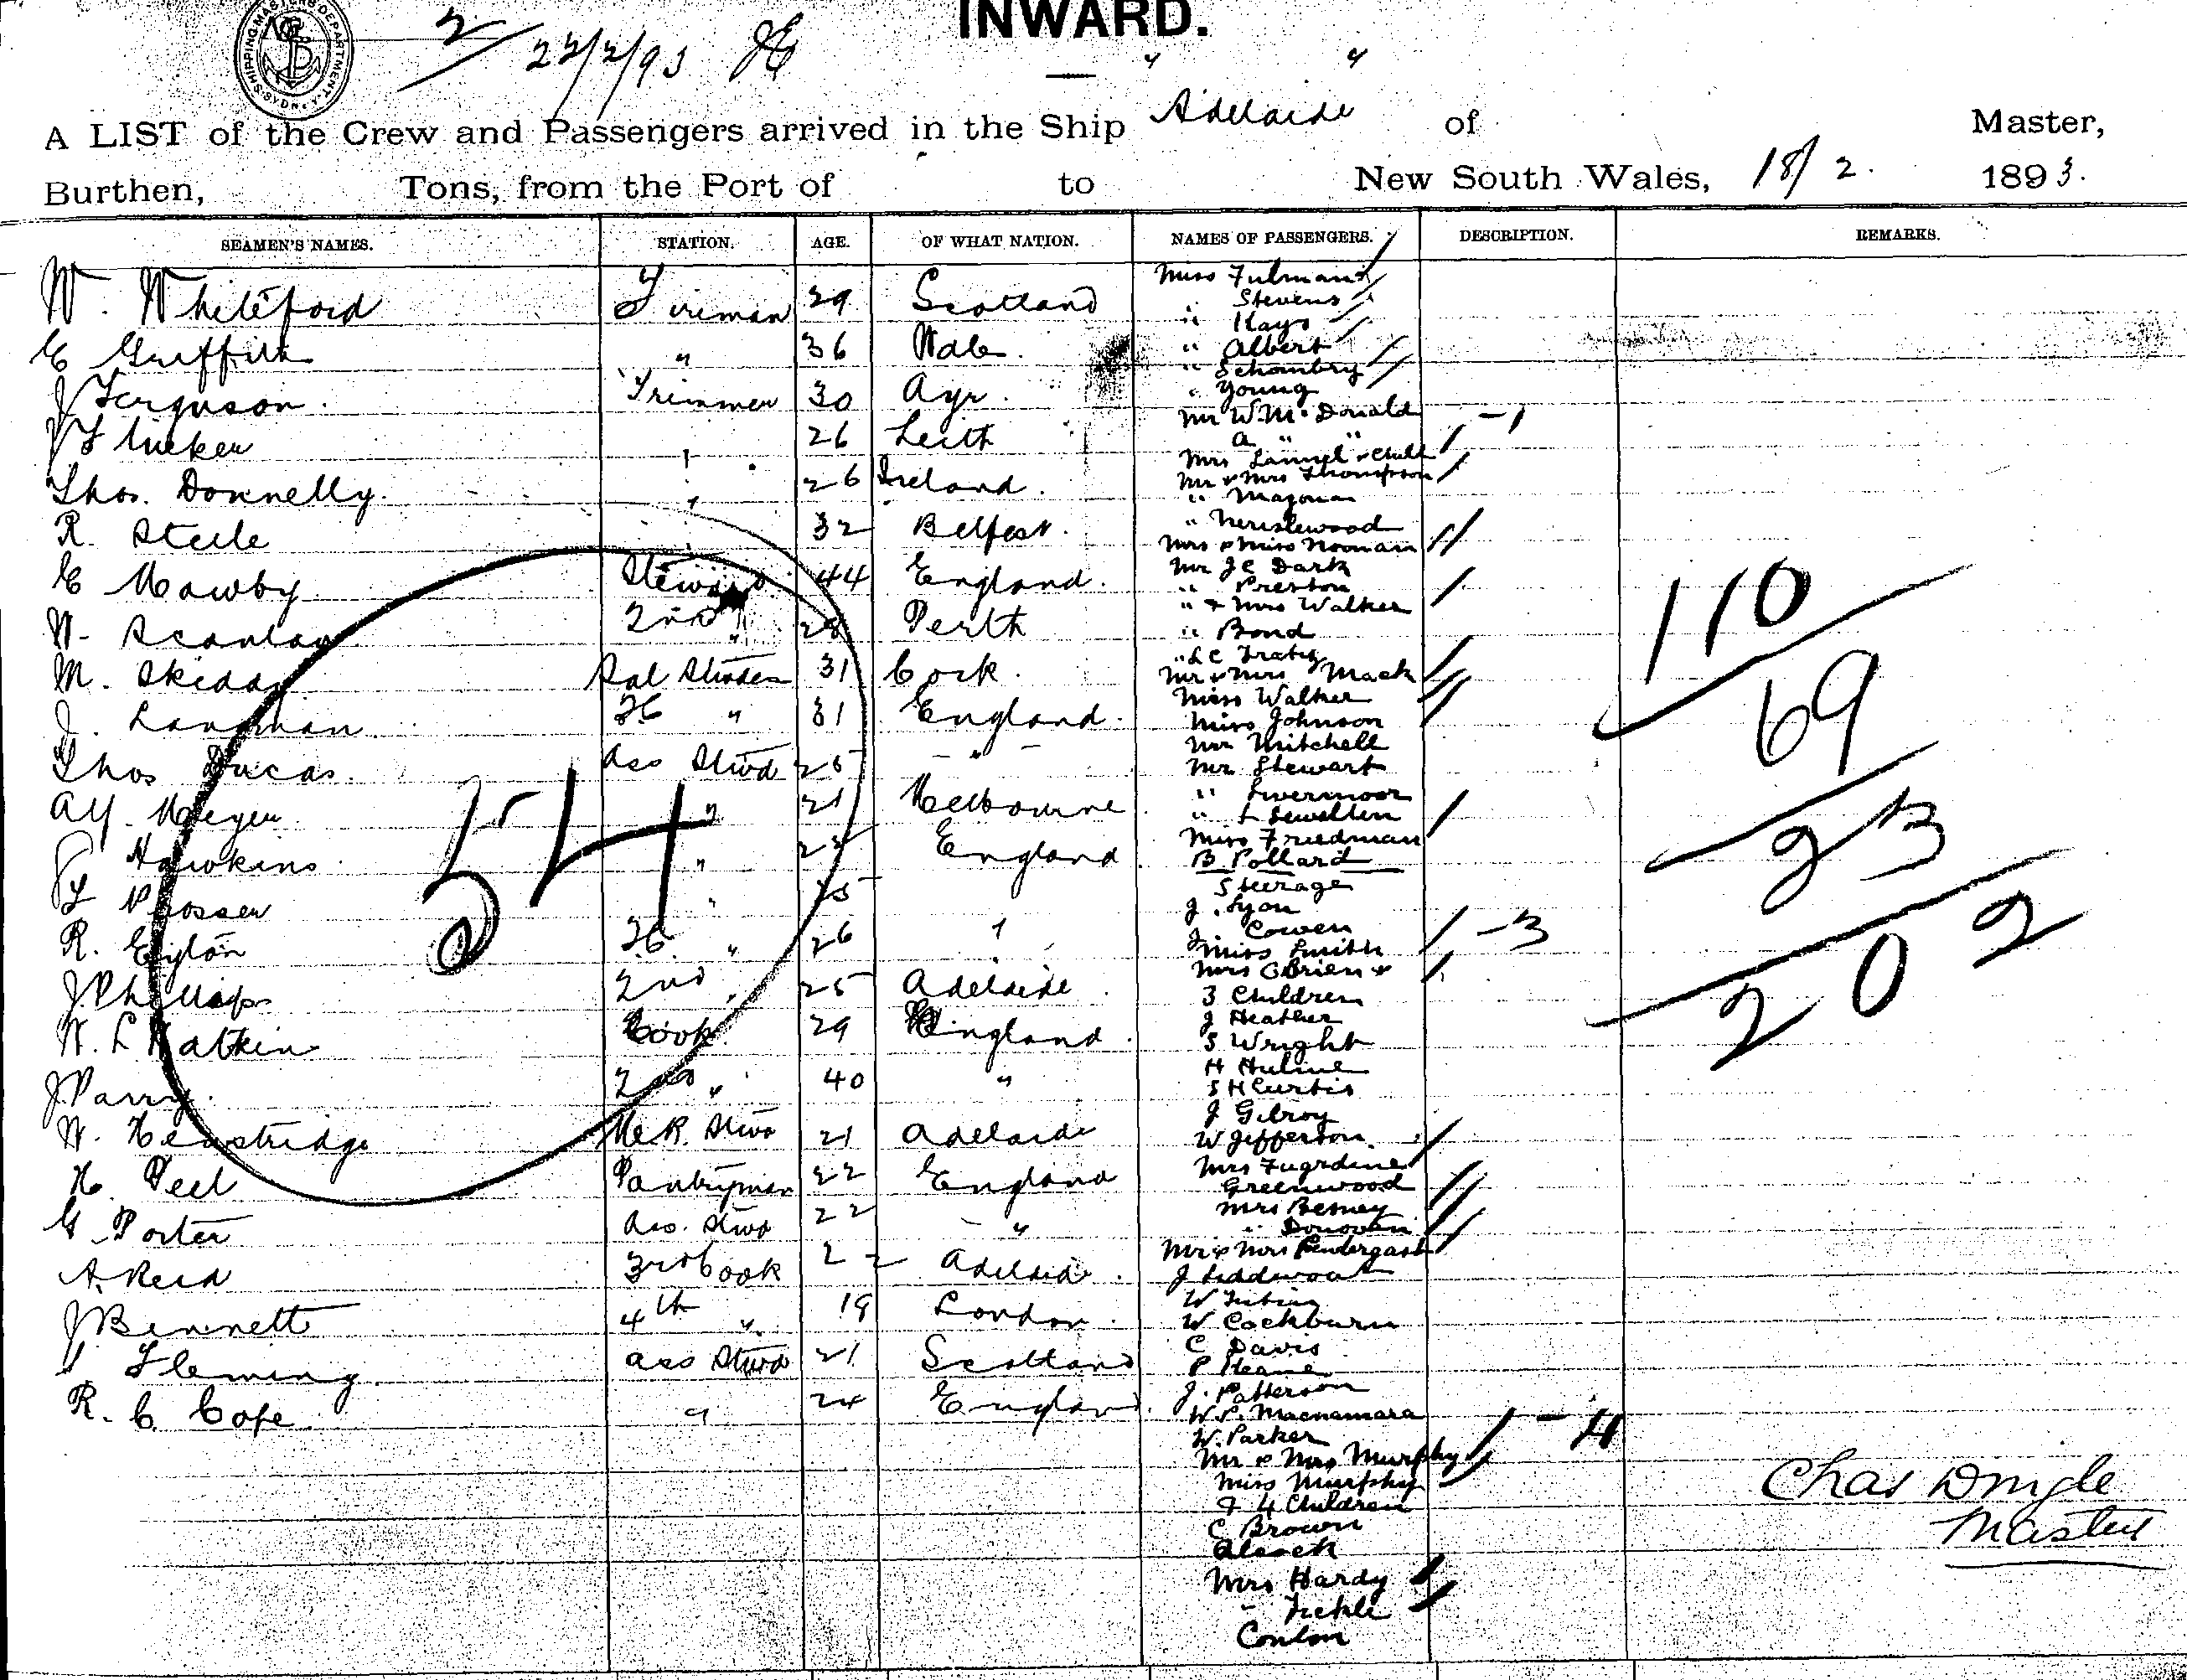 SHIPPING MASTER'S DEPARTMENT SYDNEY
2
22/2/93
INWARD.
" "
A LIST of the Crew and Passengers arrived in the Ship Adelaide of Master,
Burthen, Tons, from the Port of to New South Wales, 18/2. 1893.
SEAMEN'S NAMES. STATION. AGE. OF WHAT NATION. NAMES OF PASSENGERS. DESCRIPTION. REMARKS.
W. Whiteford Fireman 29 Scotland
E Griffith " 36 Wales.
J Ferguson. Trimmer 30 Ayr.
26 Leith
Thos. Donnelly. " 26 Ireland.
R. Steele 32 Belfast.
E Mawby Steward 44 England.
W. Scanlan 2nd " 28 Perth
M. Skiddy Sal Stwdes 31 Cork.
J. Langman FC " 31 England.
Thos Ducas. Ass Stwd 25 "
Alf. Meyer " 21 Melbourne
Hawkins " England
Prosser "
R. Eyton FC " 26 "
J Phillips 2nd " 25 Adelaide
W. L Watkin Cook 29 England.
J. Parry. 2nd " 40 "
W. Heastridge M.R. Stwd 21 Adelaide
H. Peel Pantryman 22 England
G. Porter Ass. Stwd 22 "
A. Reid 3rd Cook 22 Adelaide.
J Bennett 4th " 19 London.
Fleming Ass Stwd 21 Scotland
R. C. Cope " 24 England.
54
Miss Fulman
" Stevens
" Hays
" Albert
"
" Young
Mr W. McDonald -1
A " "
Mrs & Child
Mr & Mrs Thompson
"
"
Mrs & Miss Noonan
Mr J C Dark
" Preston
" & Mrs Walker
" Bond
" L C
Mr & Mrs Mack
Miss Walker
Miss Johnson
Mr Mitchell
Mr Stewart
" Livermoor
" L Lewellen
Miss Friedman
B Pollard
Steerage
J. Lyon
J. Cowen -3
Miss Smith
Mrs O'Brien &
3 Children
J Heather
S Wright
H Hulme
S H Curtis
J Gilroy
W Jefferson.
Mrs
Greenwood
Mrs
" Donovan
Mr & Mrs Pendergast
J
W
W Cockburn
C Davis
P Keane
J. Patterson
W. P. Macnamara
W. Parker -4
Mr & Mrs Murphy
Miss Murphy
& 4 Children
C Brown
Alcock
Mrs Hardy
" Tickle
Conlon
110
69
23
202
Chas Dingle
Master